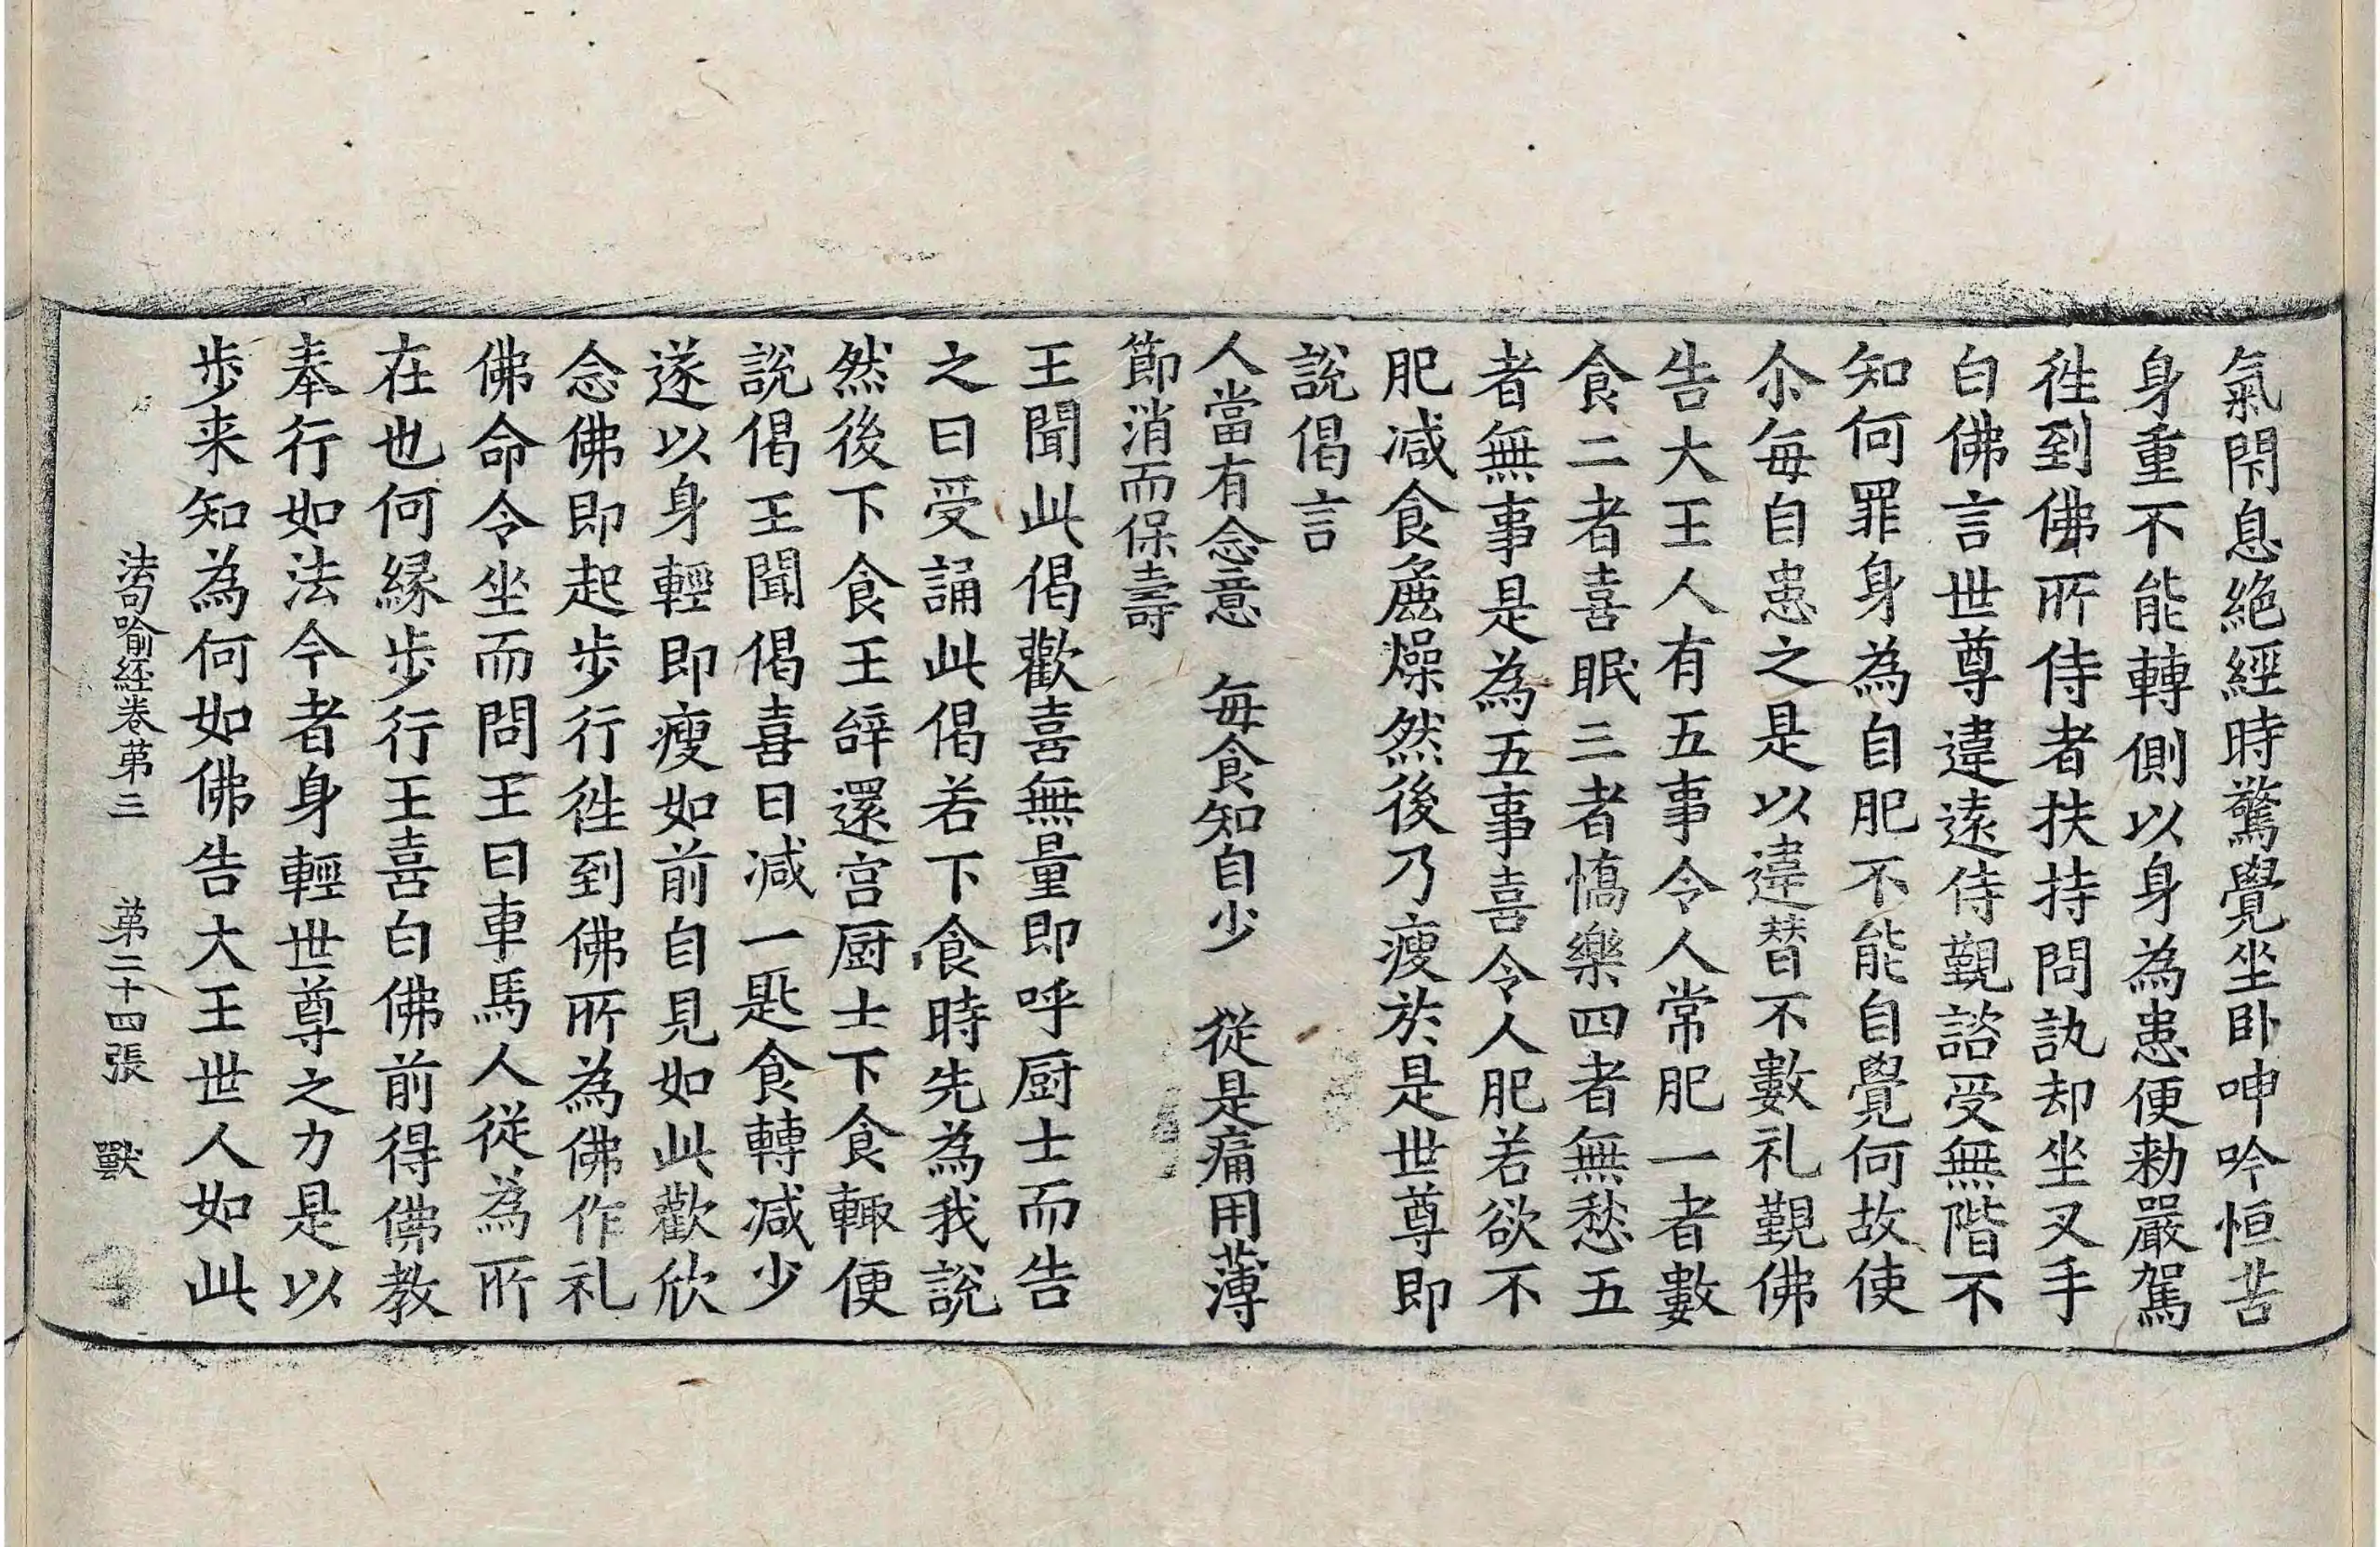 氣閇息絶經時驚覺坐卧呻吟恒苦
身重不能轉側以身為患便勑嚴駕
徃到佛所侍者扶持問訊却坐叉手
白佛言世尊違遠侍覲諮受無階不
知何罪身為自肥不能自覺何故使
尒每自患之是以違替不數礼覲佛
告大王人有五事令人常肥一者數
食二者喜眠三者憍樂四者無愁五
者無事是為五事喜令人肥若欲不
肥减食麁燥然後乃瘦於是世尊即
說偈言
人當有念意　每食知自少　從是痛用薄
節消而保壽
王聞此偈歡喜無量即呼厨士而告
之曰受誦此偈若下食時先為我說
然後下食王辝還宫厨士下食輙便
說偈王聞偈喜日减一匙食轉减少
遂以身輕即瘦如前自見如此歡欣
念佛即起步行徃到佛所為佛作礼
佛命令坐而問王曰車馬人從為所
在也何縁步行王喜白佛前得佛教
奉行如法今者身輕世尊之力是以
步来知為何如佛告大王世人如此
法句喻経卷第三　第二十四張　獸